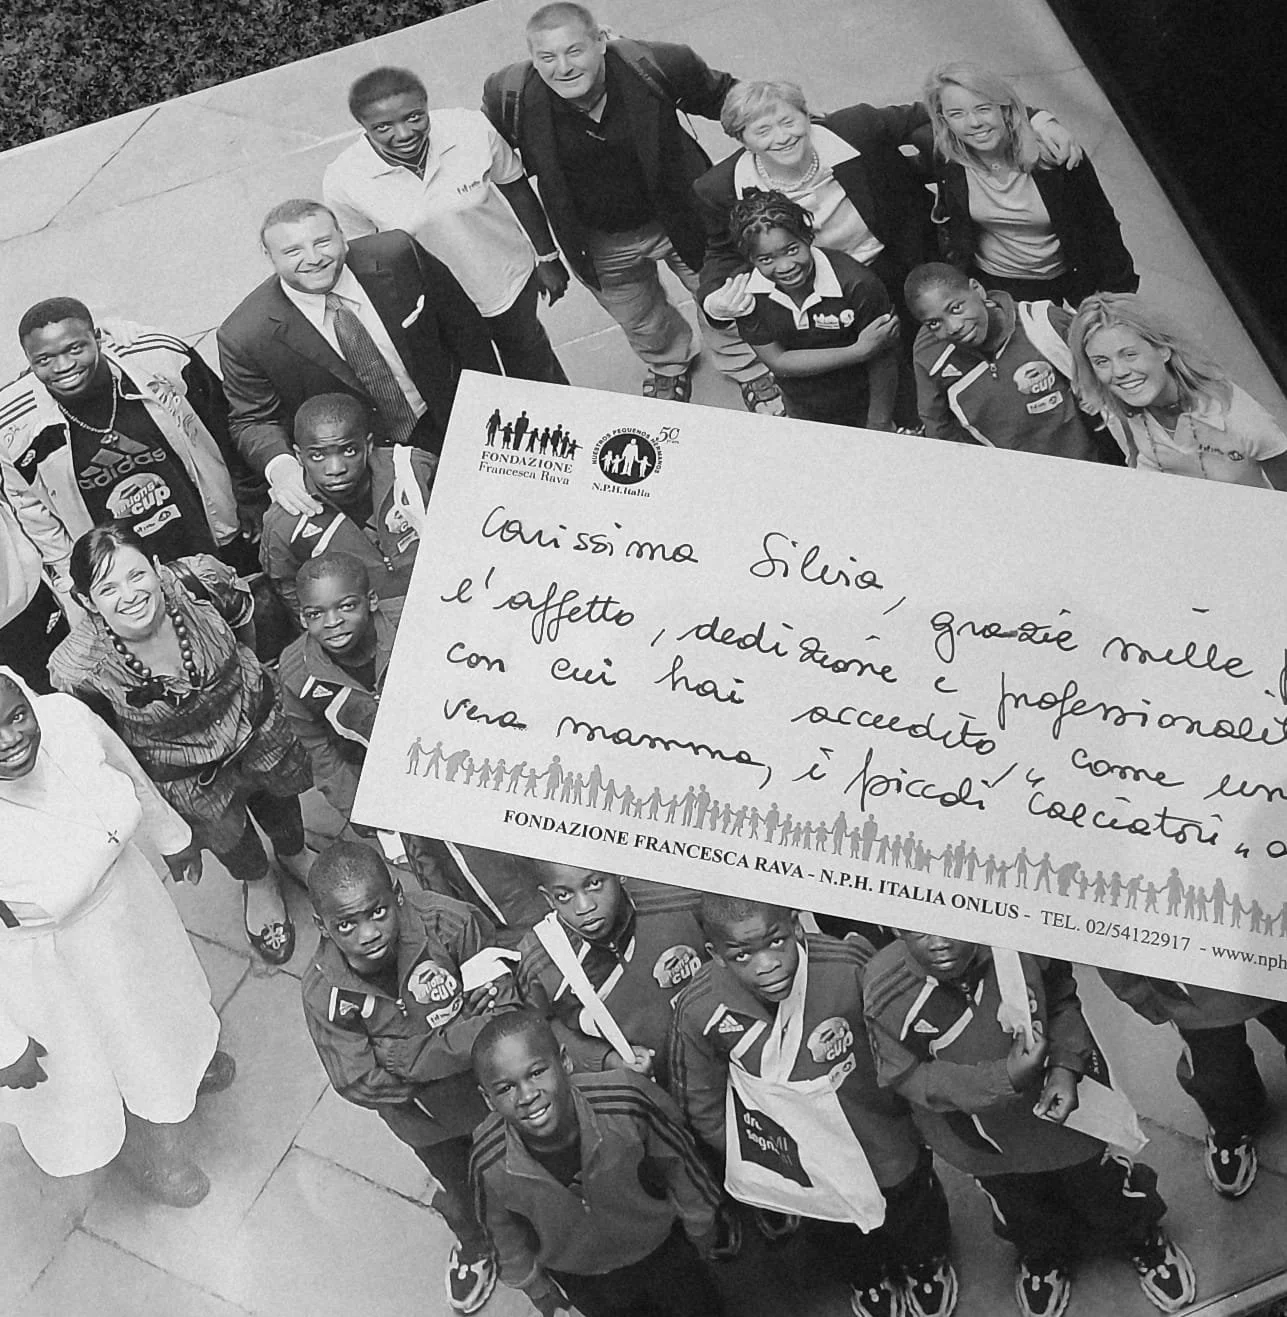 adidas
cup
cup
FONDAZIONE
Francesca Rava
NUESTROS PEQUEÑOS HERMANOS
50
N.P.H. Italia
Carissima Silvia, grazie mille
l'affetto, dedizione e professionalit
con cui hai accudito, "come un
vera mamma, i piccoli "calciatori"
FONDAZIONE FRANCESCA RAVA - N.P.H. ITALIA ONLUS - TEL. 02/54122917 - www.nph
cup
cup
cup